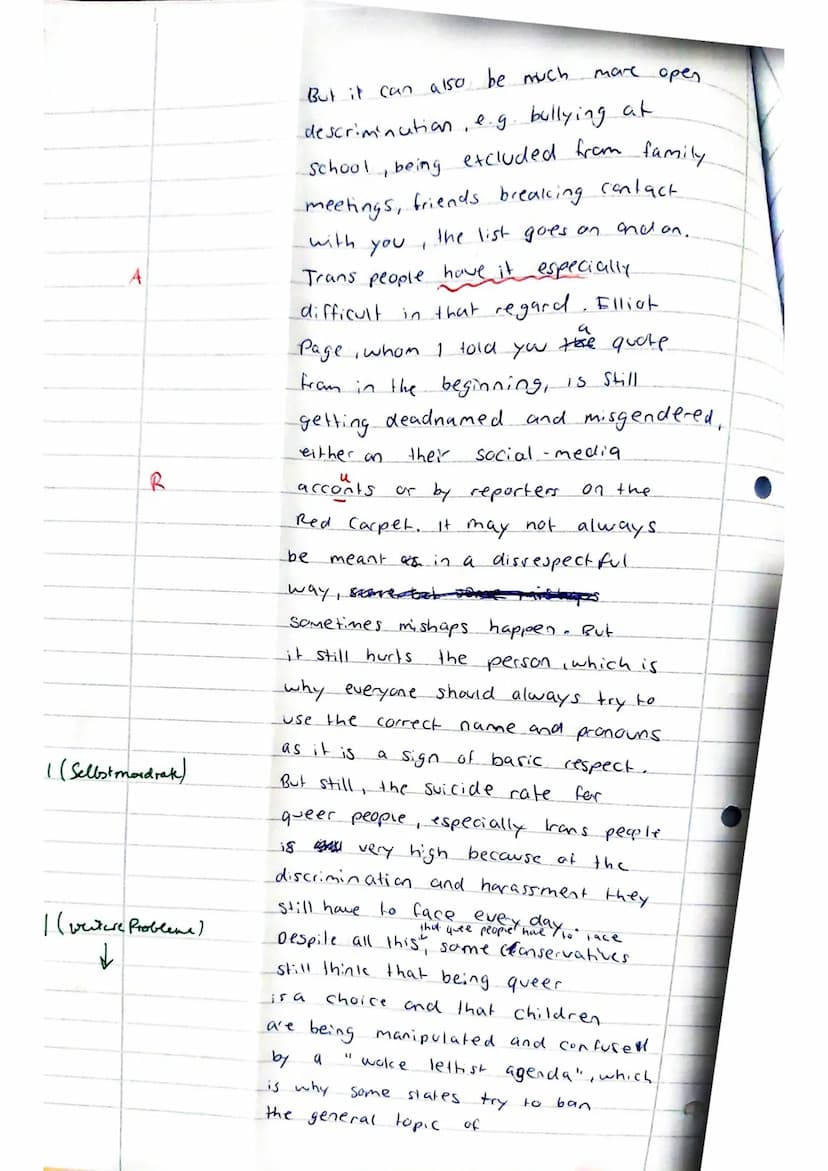 But it can also be much more open
descrimination, e.g. bullying at
school, being excluded from family
meetings, friends breaking contact
with you, the list goes on and on.
A
Trans people have it especially
difficult in that regard. Elliot
a
Page, whom I told you the quote
from in the beginning, is still
getting deadnamed and misgendered,
either on their social-media
R
u
acconts or by reporters on the
Red Carpet. It may not always
be meant as in a disrespectful
way,
sometimes mishaps happen. But
it still hurts the person, which is
why everyone should always try to
use the correct name and pronouns
as it is a sign of basic respect.
I (Selbstmordrate)
But still, the suicide rate for
queer people, especially trans people
is very high because of the
discrimination and harassment they
still have to face every day.
I (weitere Probleme)
that quee people have to face
Despite all this, some Conservatives
still think that being queer
is a choice and that children
are being manipulated and confused
by a "woke leftist agenda", which
is why some states try to ban
the general topic of